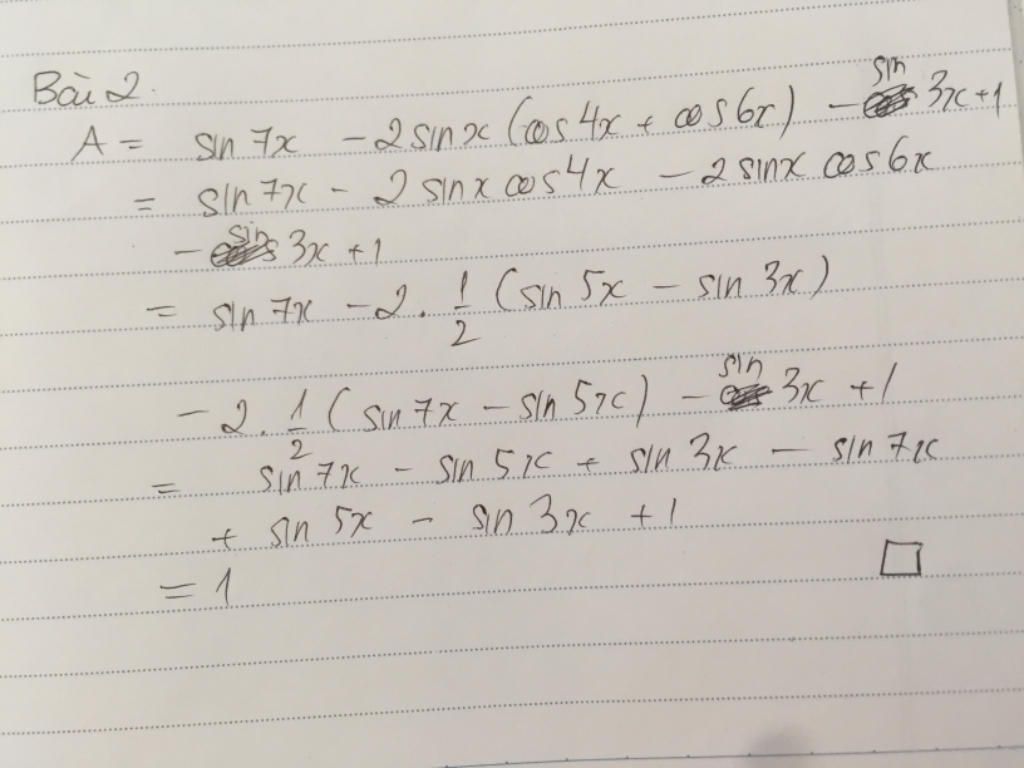 Bài 2.
A = sin 7x - 2 sin x (cos 4x + cos 6x) - sin 3x + 1
= sin 7x - 2 sin x cos 4x - 2 sin x cos 6x
- sin 3x + 1
= sin 7x - 2 . 1/2 (sin 5x - sin 3x)
- 2 . 1/2 (sin 7x - sin 5x) - sin 3x + 1
= sin 7x - sin 5x + sin 3x - sin 7x
+ sin 5x - sin 3x + 1
= 1 □